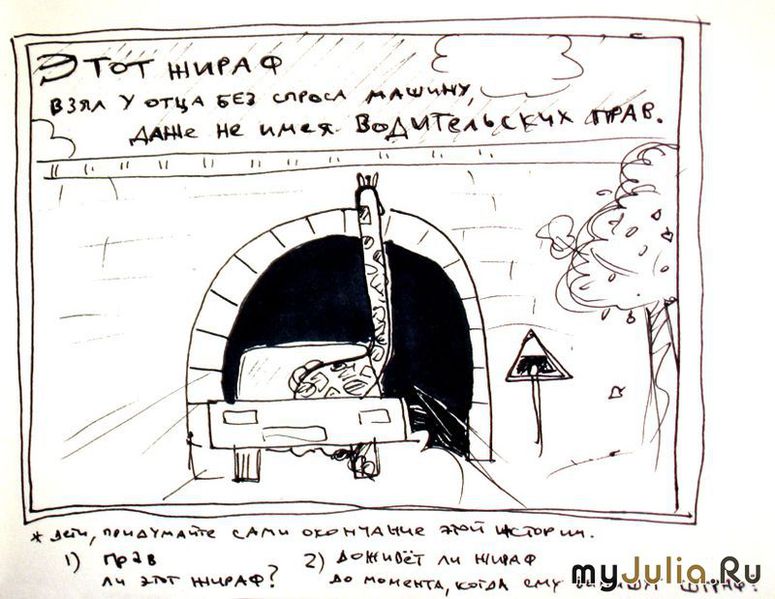 Этот жираф
взял у отца без спроса машину,
даже не имея водительских прав.
* дети, придумайте сами окончание этой истории.
1) Прав
ли этот жираф?
2) Доживёт ли жираф
до момента, когда ему выпишут штраф?
myJulia.Ru